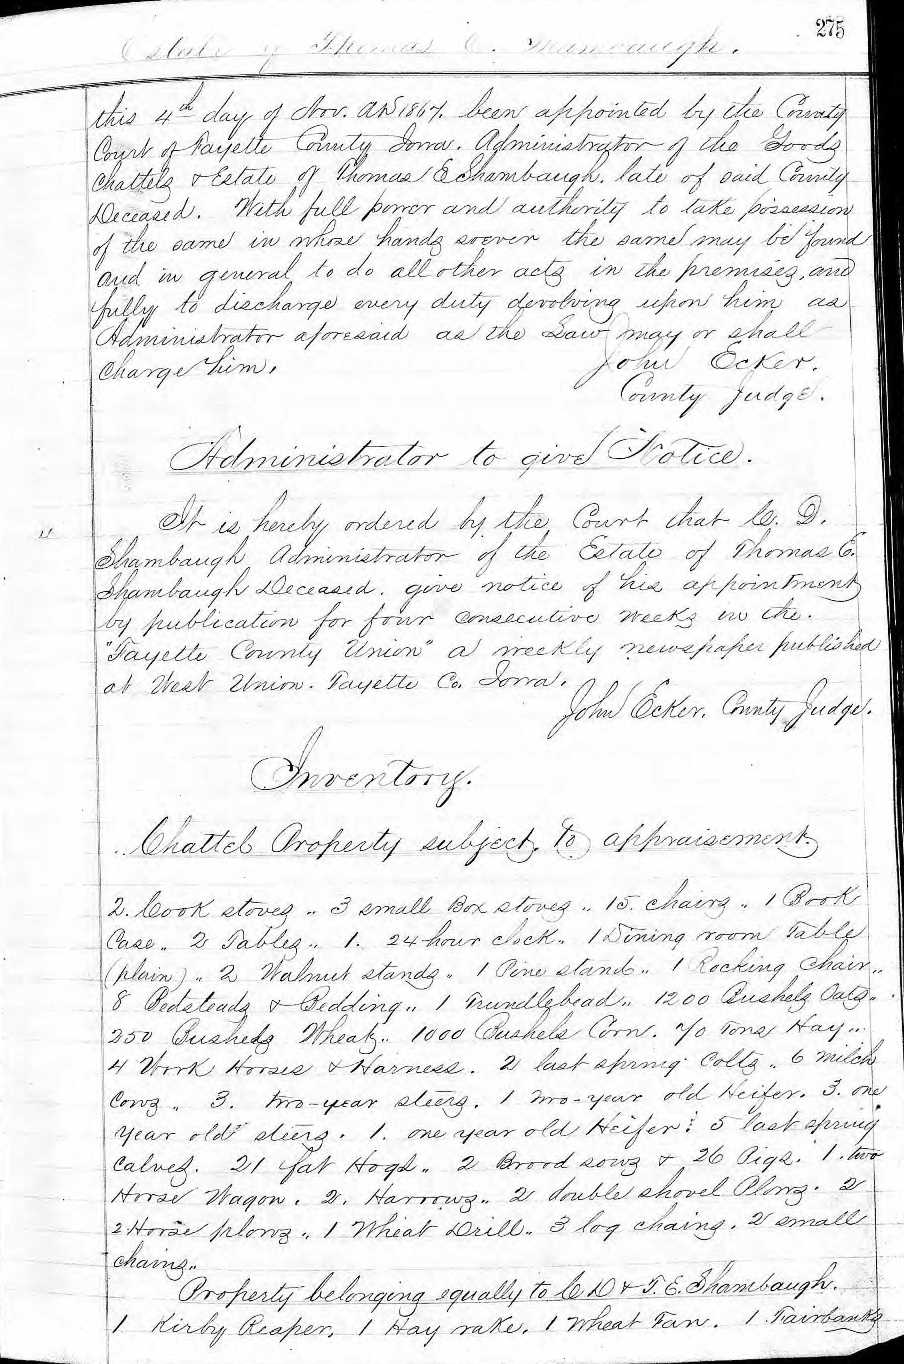 275
Estate of Thomas E. Shambaugh.
this 4th day of Nov. A.D 1867. been appointed by the County
Court of Fayette County Iowa. Administrator of the Goods
Chattels & Estate of Thomas E Shambaugh. late of said County
Deceased. With full power and authority to take possession
of the same in whose hands soever the same may be found
and in general to do all other acts in the premises, and
fully to discharge every duty devolving upon him as
Administrator aforesaid as the Law may or shall
charge him.
John Ecker.
County Judge.
Administrator to give Notice.
It is hereby ordered by the Court that C. D.
Shambaugh Administrator of the Estate of Thomas E.
Shambaugh Deceased. give notice of his appointment
by publication for four consecutive weeks in the.
"Fayette County Union" a weekly newspaper published
at West Union. Fayette Co. Iowa.
John Ecker. County Judge.
Inventory.
Chattel Property subject to appraisement.
2. Cook stoves .. 3 small Box stoves .. 15. chairs .. 1 Book
Case .. 2 Tables .. 1. 24-hour clock .. 1 Dining room Table
(plain) .. 2 Walnut stands .. 1 Pine stand .. 1 Rocking Chair ..
8 Bedsteads & Bedding .. 1 Trundlebead .. 1200 Bushels Oats ..
250 Bushels Wheat .. 1000 Bushels Corn. 70 Tons Hay ..
4 Work Horses & Harness. 2 last spring Colts .. 6 milch
Cows .. 3. two-year steers. 1 two-year old Heifer. 3. one
year old steers. 1. one year old Heifer: 5 last spring
Calves. 21 fat Hogs .. 2 Brood sows & 26 Pigs. 1. two
Horse Wagon. 2. Harrows .. 2 double shovel Plows. 2
2 Horse plows .. 1 Wheat Drill .. 3 log chains. 2 small
chains ..
Property belonging equally to C D & T. E. Shambaugh.
1 Kirby Reaper. 1 Hay rake. 1 Wheat Fan. 1 Fairbanks